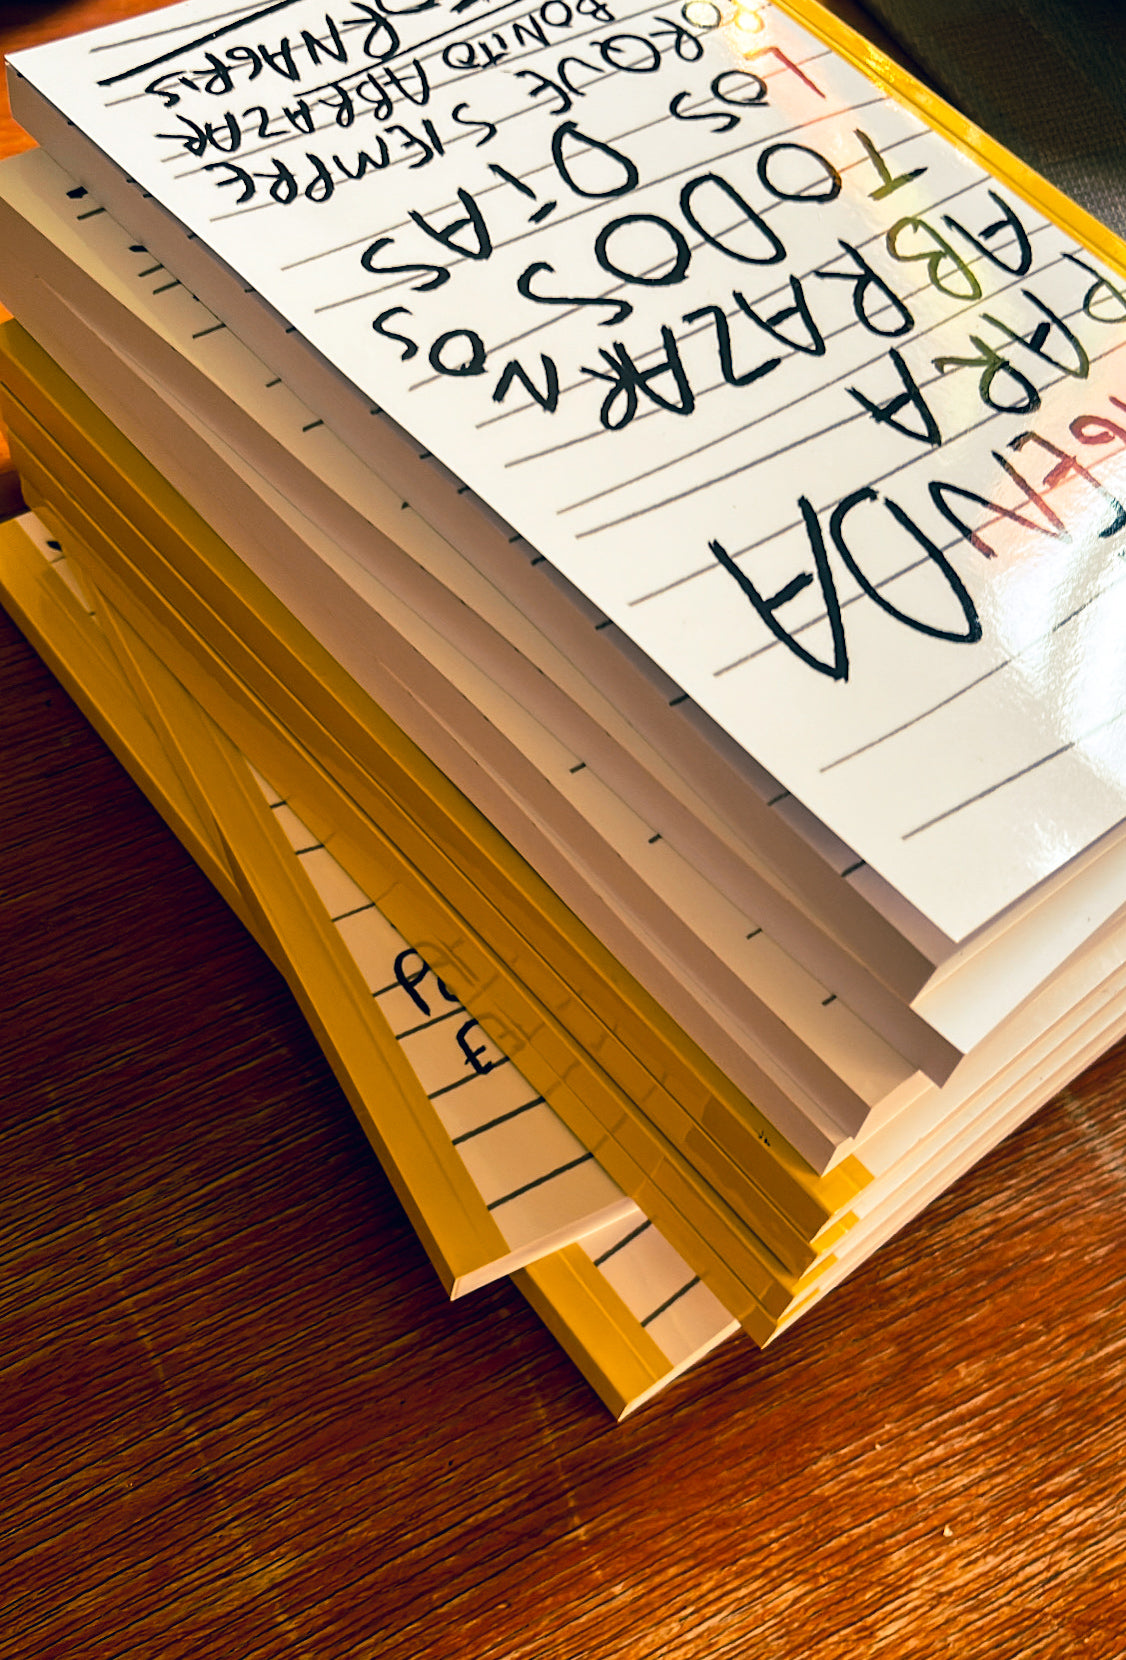 AGENDA
PARA
ABRAZARNOS
TODOS
LOS DÍAS
PORQUE SIEMPRE
BONITO ABRAZAR